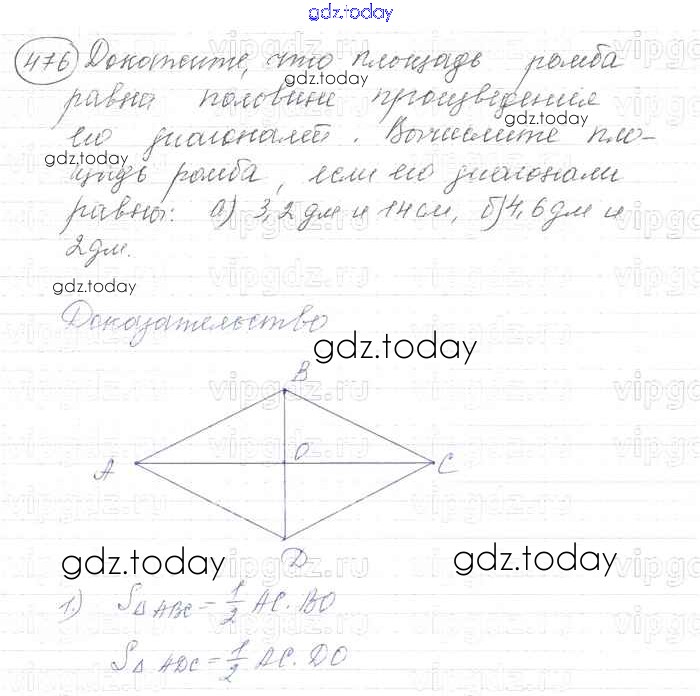 gdz.today
476 Докажите, что площадь ромба
gdz.today
равна половине произведения
gdz.today
его диагоналей. Вычислите пло-
gdz.today
щадь ромба, если его диагонали
равны: а) 3,2 дм и 14 см, б) 4,6 дм и
2 дм.
gdz.today
Доказательство
gdz.today
B
A O C
D
gdz.today gdz.today
1) S△ABC = 1/2 AC · BO
S△ADC = 1/2 AC · DO